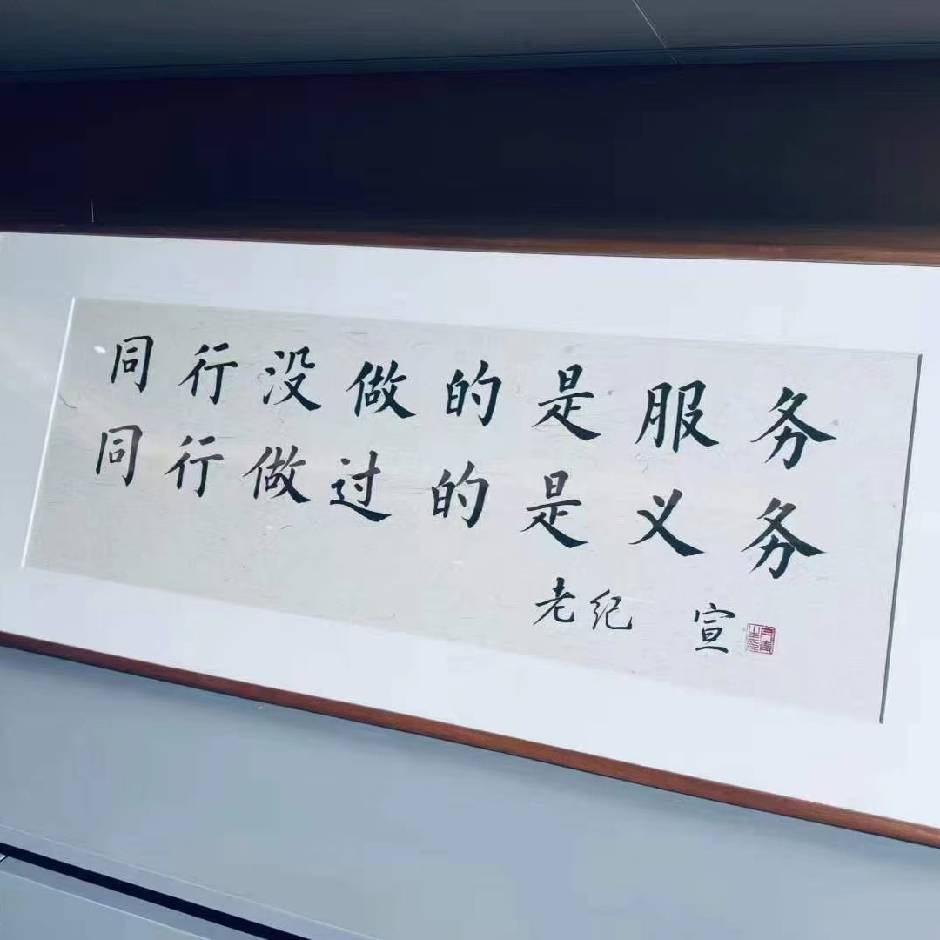 同行没做的是服务
同行做过的是义务
老纪 宣